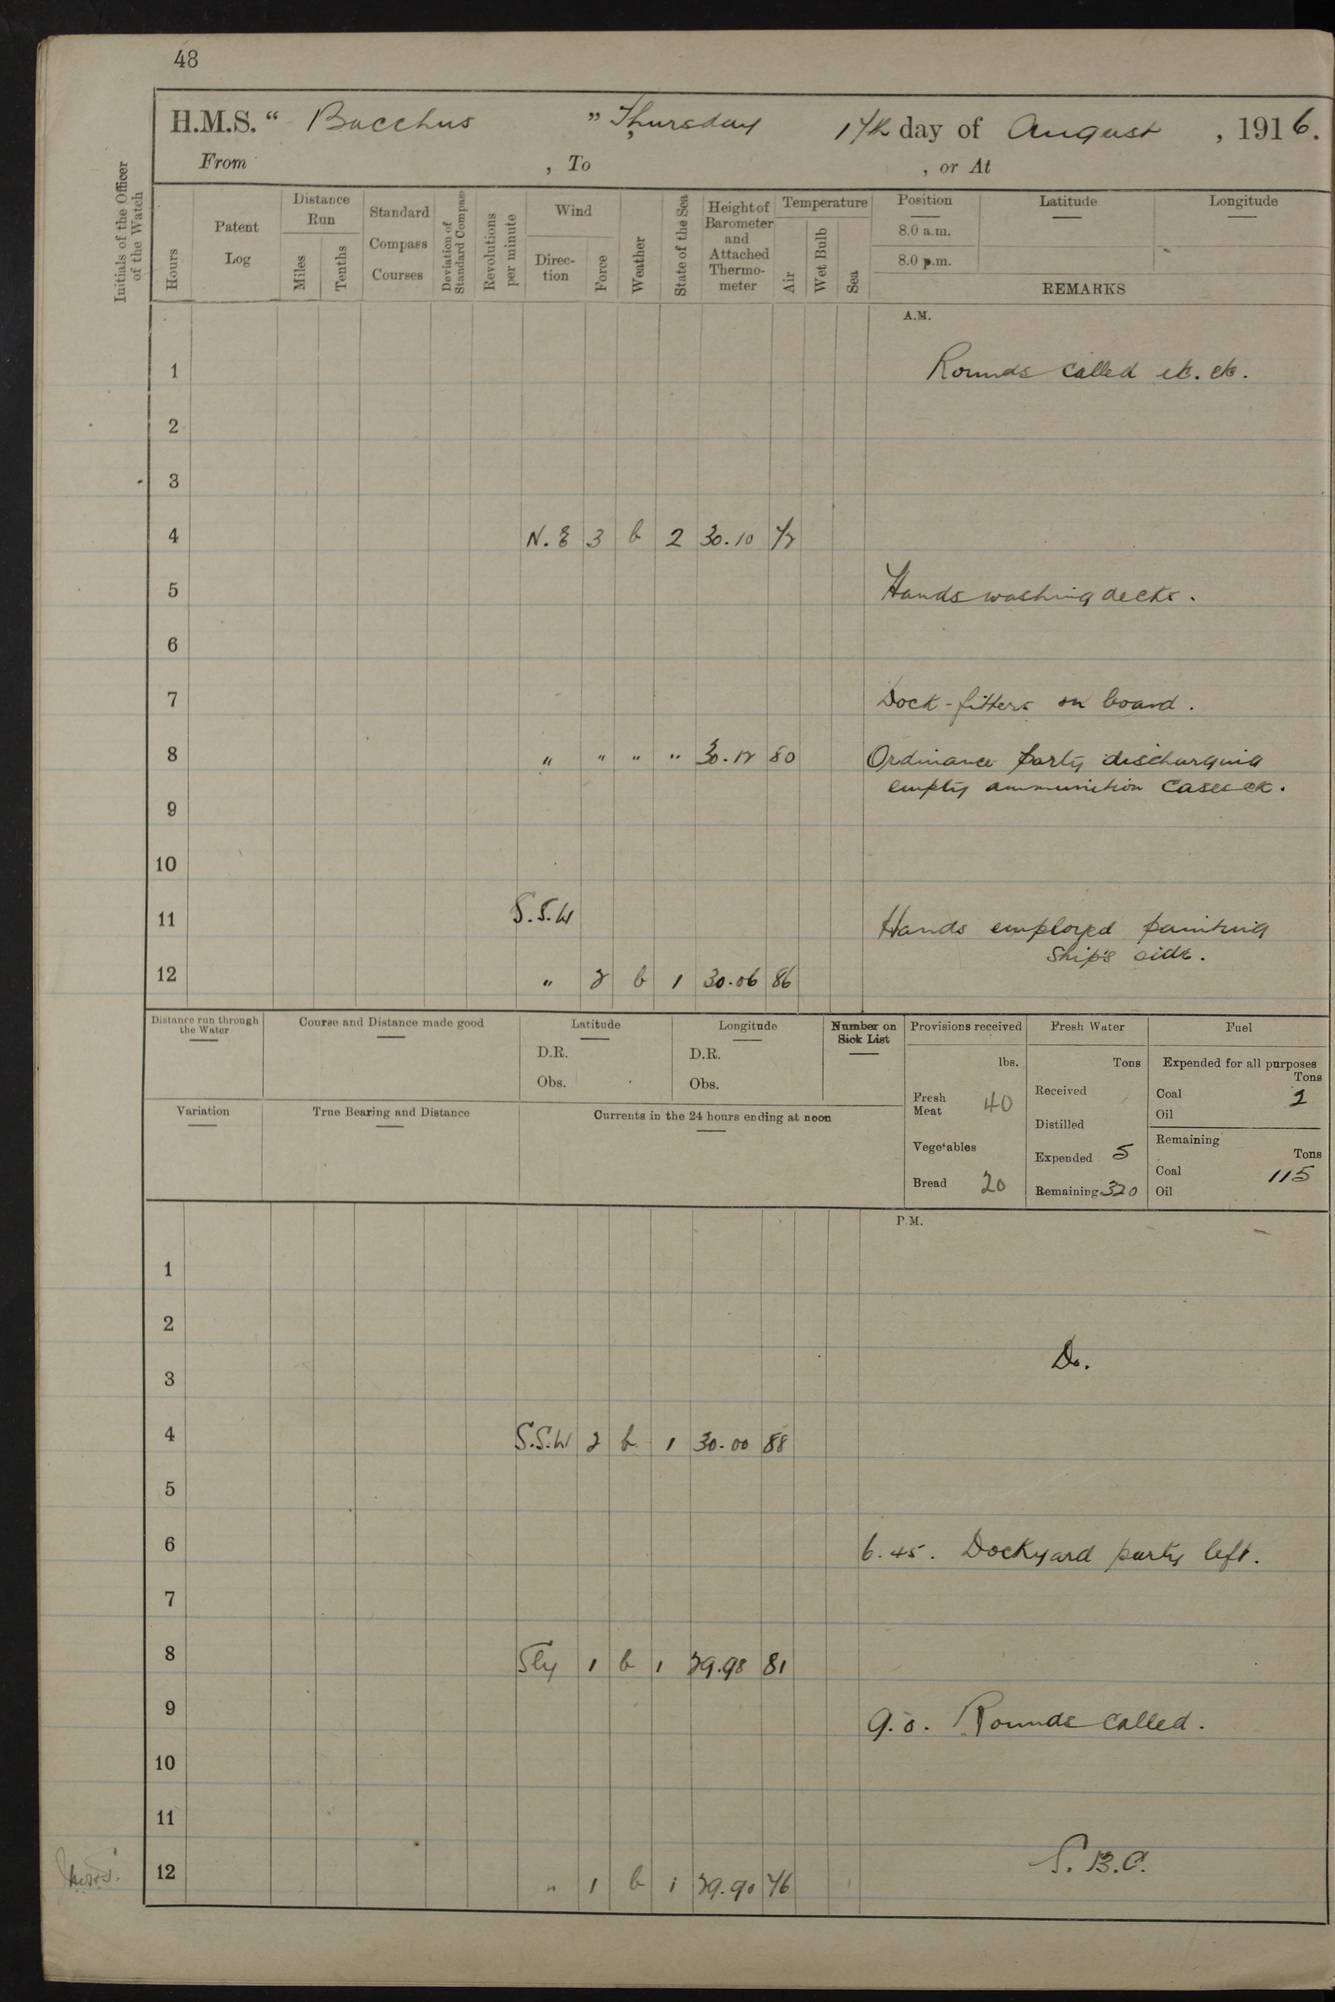 48
H.M.S. “ Bacchus ” Thursday 17th day of August , 1916.
From , To , or At
Initials of the Officer of the Watch
Hours
Patent Log
Distance Run
Miles
Tenths
Standard Compass Courses
Deviation of Standard Compass
Revolutions per minute
Wind
Direc-tion
Force
Weather
State of the Sea
Height of Barometer and Attached Thermo-meter
Temperature
Air
Wet Bulb
Sea
Position
8.0 a.m.
8.0 p.m.
Latitude
Longitude
REMARKS
A.M.
1 Rounds called etc. etc.
2
3
4 N.E 3 b 2 30.10 72
5 Hands washing decks.
6
7 Dock-fitters on board.
8 " " " " 30.12 80 Ordinance party discharging
empty ammunition cases etc.
9
10
11 S.S.W Hands employed painting
ship's side.
12 " 2 b 1 30.06 86
Distance run through the Water
Course and Distance made good
Latitude
D.R.
Obs.
Longitude
D.R.
Obs.
Number on Sick List
Provisions received
lbs.
Fresh Meat 40
Vegetables
Bread 20
Fresh Water
Tons
Received
Distilled
Expended 5
Remaining 320
Fuel
Expended for all purposes
Tons
Coal 2
Oil
Remaining
Tons
Coal 115
Oil
Variation
True Bearing and Distance
Currents in the 24 hours ending at noon
P.M.
1
2
Do.
3
4 S.S.W 2 b 1 30.00 88
5
6 6.45. Dockyard party left.
7
8 Sly 1 b 1 29.98 81
9 9.0. Rounds called.
10
11
12 " 1 b 1 29.90 76 S.B.C.